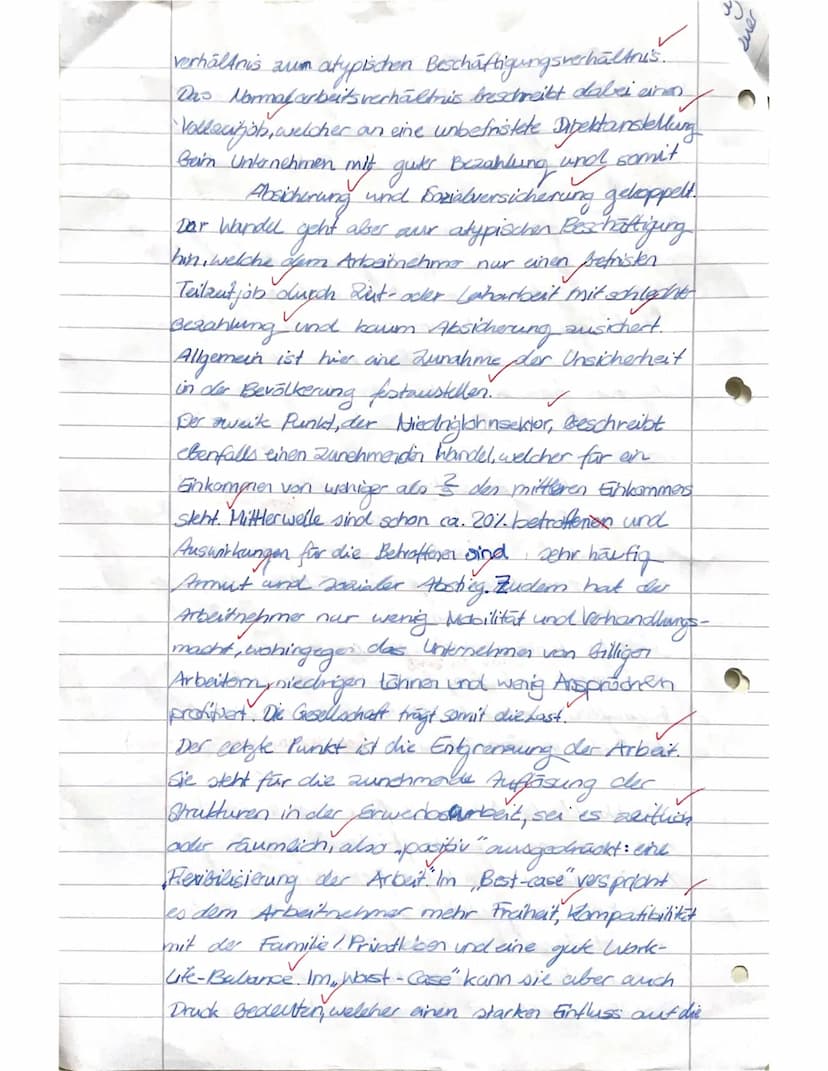 verhältnis zum atypischen Beschäftigungsverhältnis.
Das Normalarbeitsverhältnis beschreibt dabei einen
Vollzeitjob, welcher an eine unbefristete Direktanstellung
beim Unternehmen mit guter Bezahlung und somit
Absicherung und Sozialversicherung gekoppelt.
Der Wandel geht aber zur atypischen Beschäftigung
hin, welche dem Arbeitnehmer nur einen befristen
Teilzeitjob durch Zeit- oder Leiharbeit mit schlechter
Bezahlung und kaum Absicherung zusichert.
Allgemein ist hier eine Zunahme der Unsicherheit
in der Bevölkerung festzustellen.
Der zweite Punkt, der Niedriglohnsektor, beschreibt
ebenfalls einen zunehmenden Wandel, welcher für ein
Einkommen von weniger als 2/3 des mittleren Einkommens
steht. Mittlerwelle sind schon ca. 20% betroffen und
Auswirkungen für die Betroffenen sind sehr häufig
Armut und sozialer Abstieg. Zudem hat der
Arbeitnehmer nur wenig Mobilität und Verhandlungs-
macht, wohingegen das Unternehmen von billigen
Arbeitern, niedrigen Löhnen und wenig Ansprüchen
profitiert. Die Gesellschaft trägt somit die Last.
Der letzte Punkt ist die Entgrenzung der Arbeit.
Sie steht für die zunehmende Auflösung der
Strukturen in der Erwerbsarbeit, sei es zeitlich
oder räumlich, also „positiv" ausgedrückt: eine
„Flexibilisierung der Arbeit." Im „Best-case" verspricht
es dem Arbeitnehmer mehr Freiheit, Kompatibilität
mit der Familie/Privatleben und eine gute Work-
Life-Balance. Im „Worst-Case" kann sie aber auch
Druck bedeuten, welcher einen starken Einfluss auf die